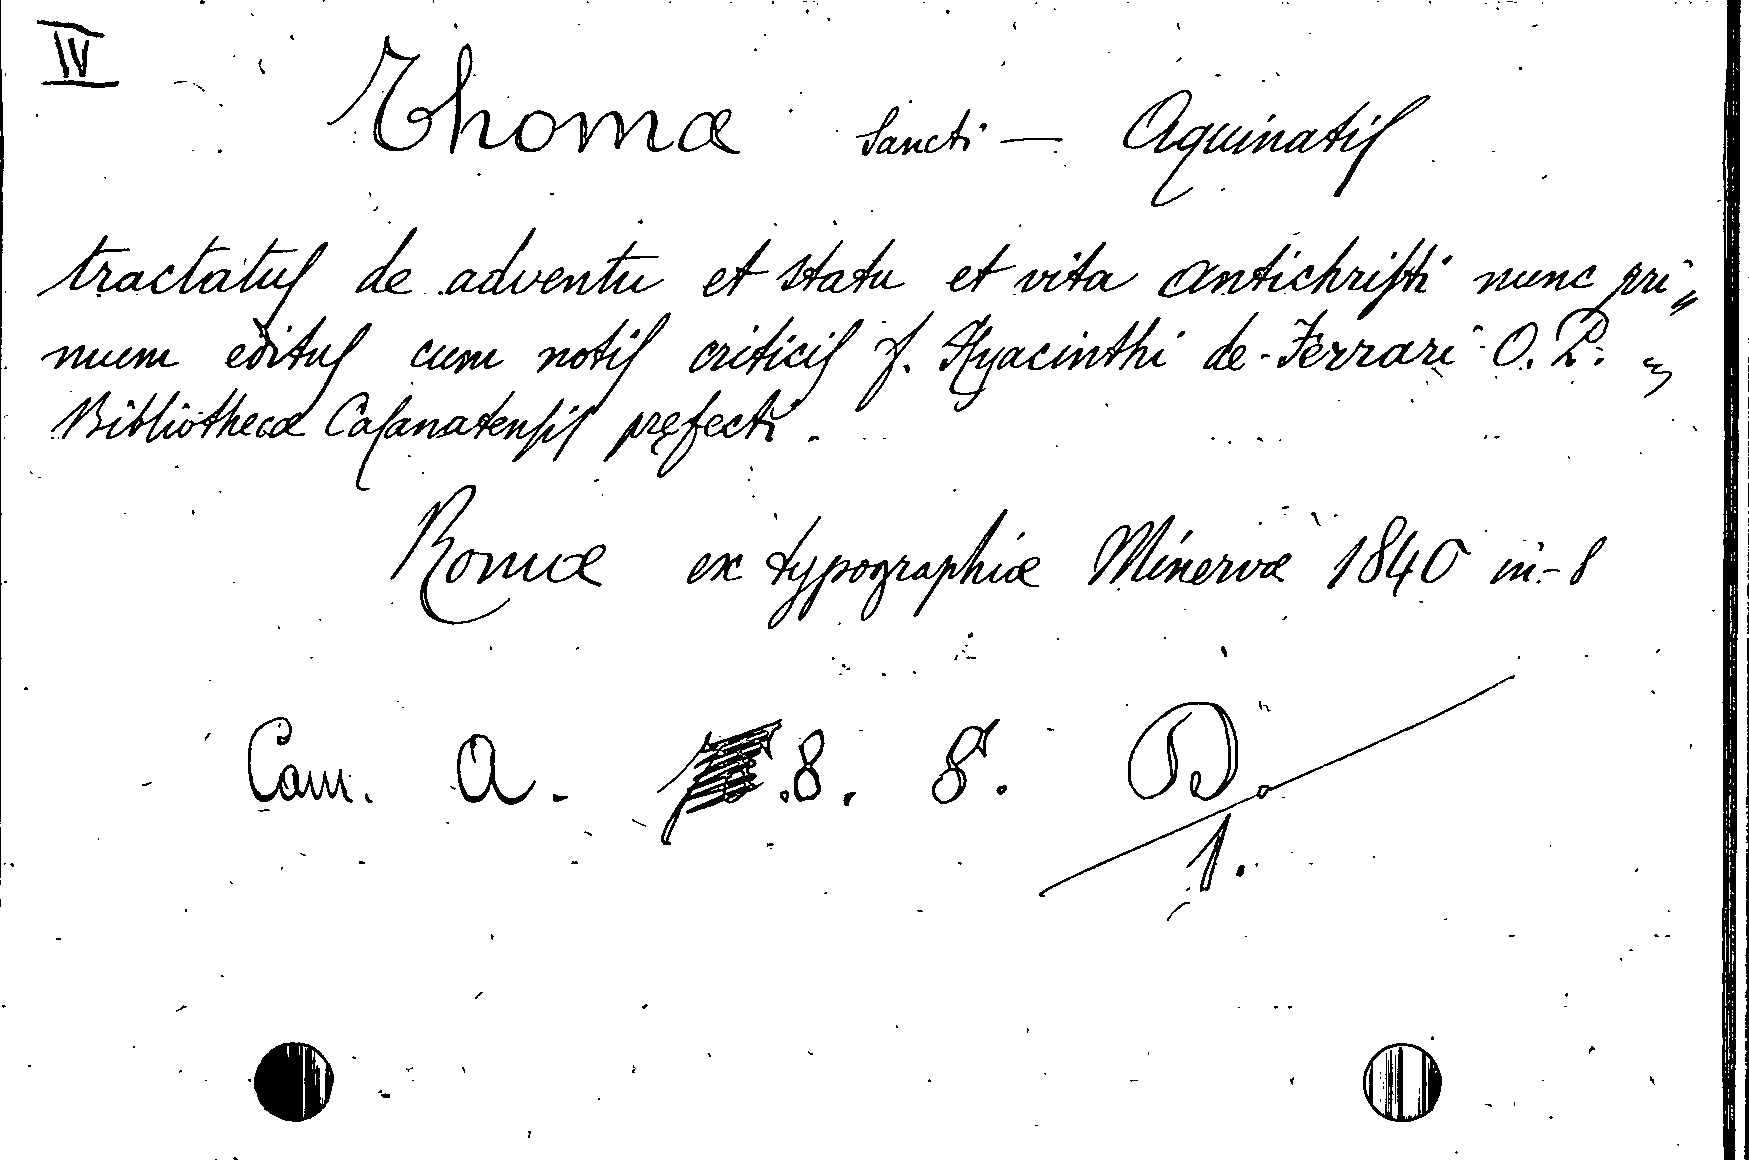 IV
Thomæ Sancti — Aquinatiſ
tractatuſ de adventu et statu et vita antichriſti nunc pri„
mum edituſ cum notiſ criticiſ f. Hyacinthi de-Ferrari O. P.
Bibliothecæ Caſanatenſiſ pręfecti.
Romæ ex typographiæ Minervæ 1840 in-8
Cam. A. .8. 8. D.
1.